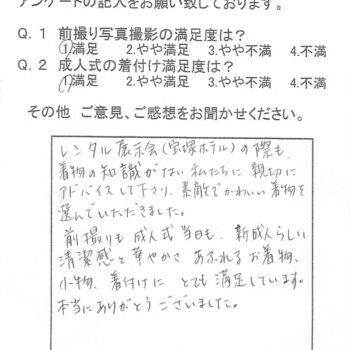 アンケートの記入をお願い致しております。
Q.1 前撮り写真撮影の満足度は?
1.満足 2.やや満足 3.やや不満 4.不満
Q.2 成人式の着付け満足度は?
1.満足 2.やや満足 3.やや不満 4.不満
その他 ご意見、ご感想をお聞かせください。
レンタル展示会(宝塚ホテル)の際も、
着物の知識がない私たちに親切に
アドバイスして下さり、素敵でかわいい着物を
選んでいただきました。
前撮りも成人式当日も、新成人らしい
清潔感と華やかさあふれるお着物、
小物、着付けにとても満足しています。
本当にありがとうございました。